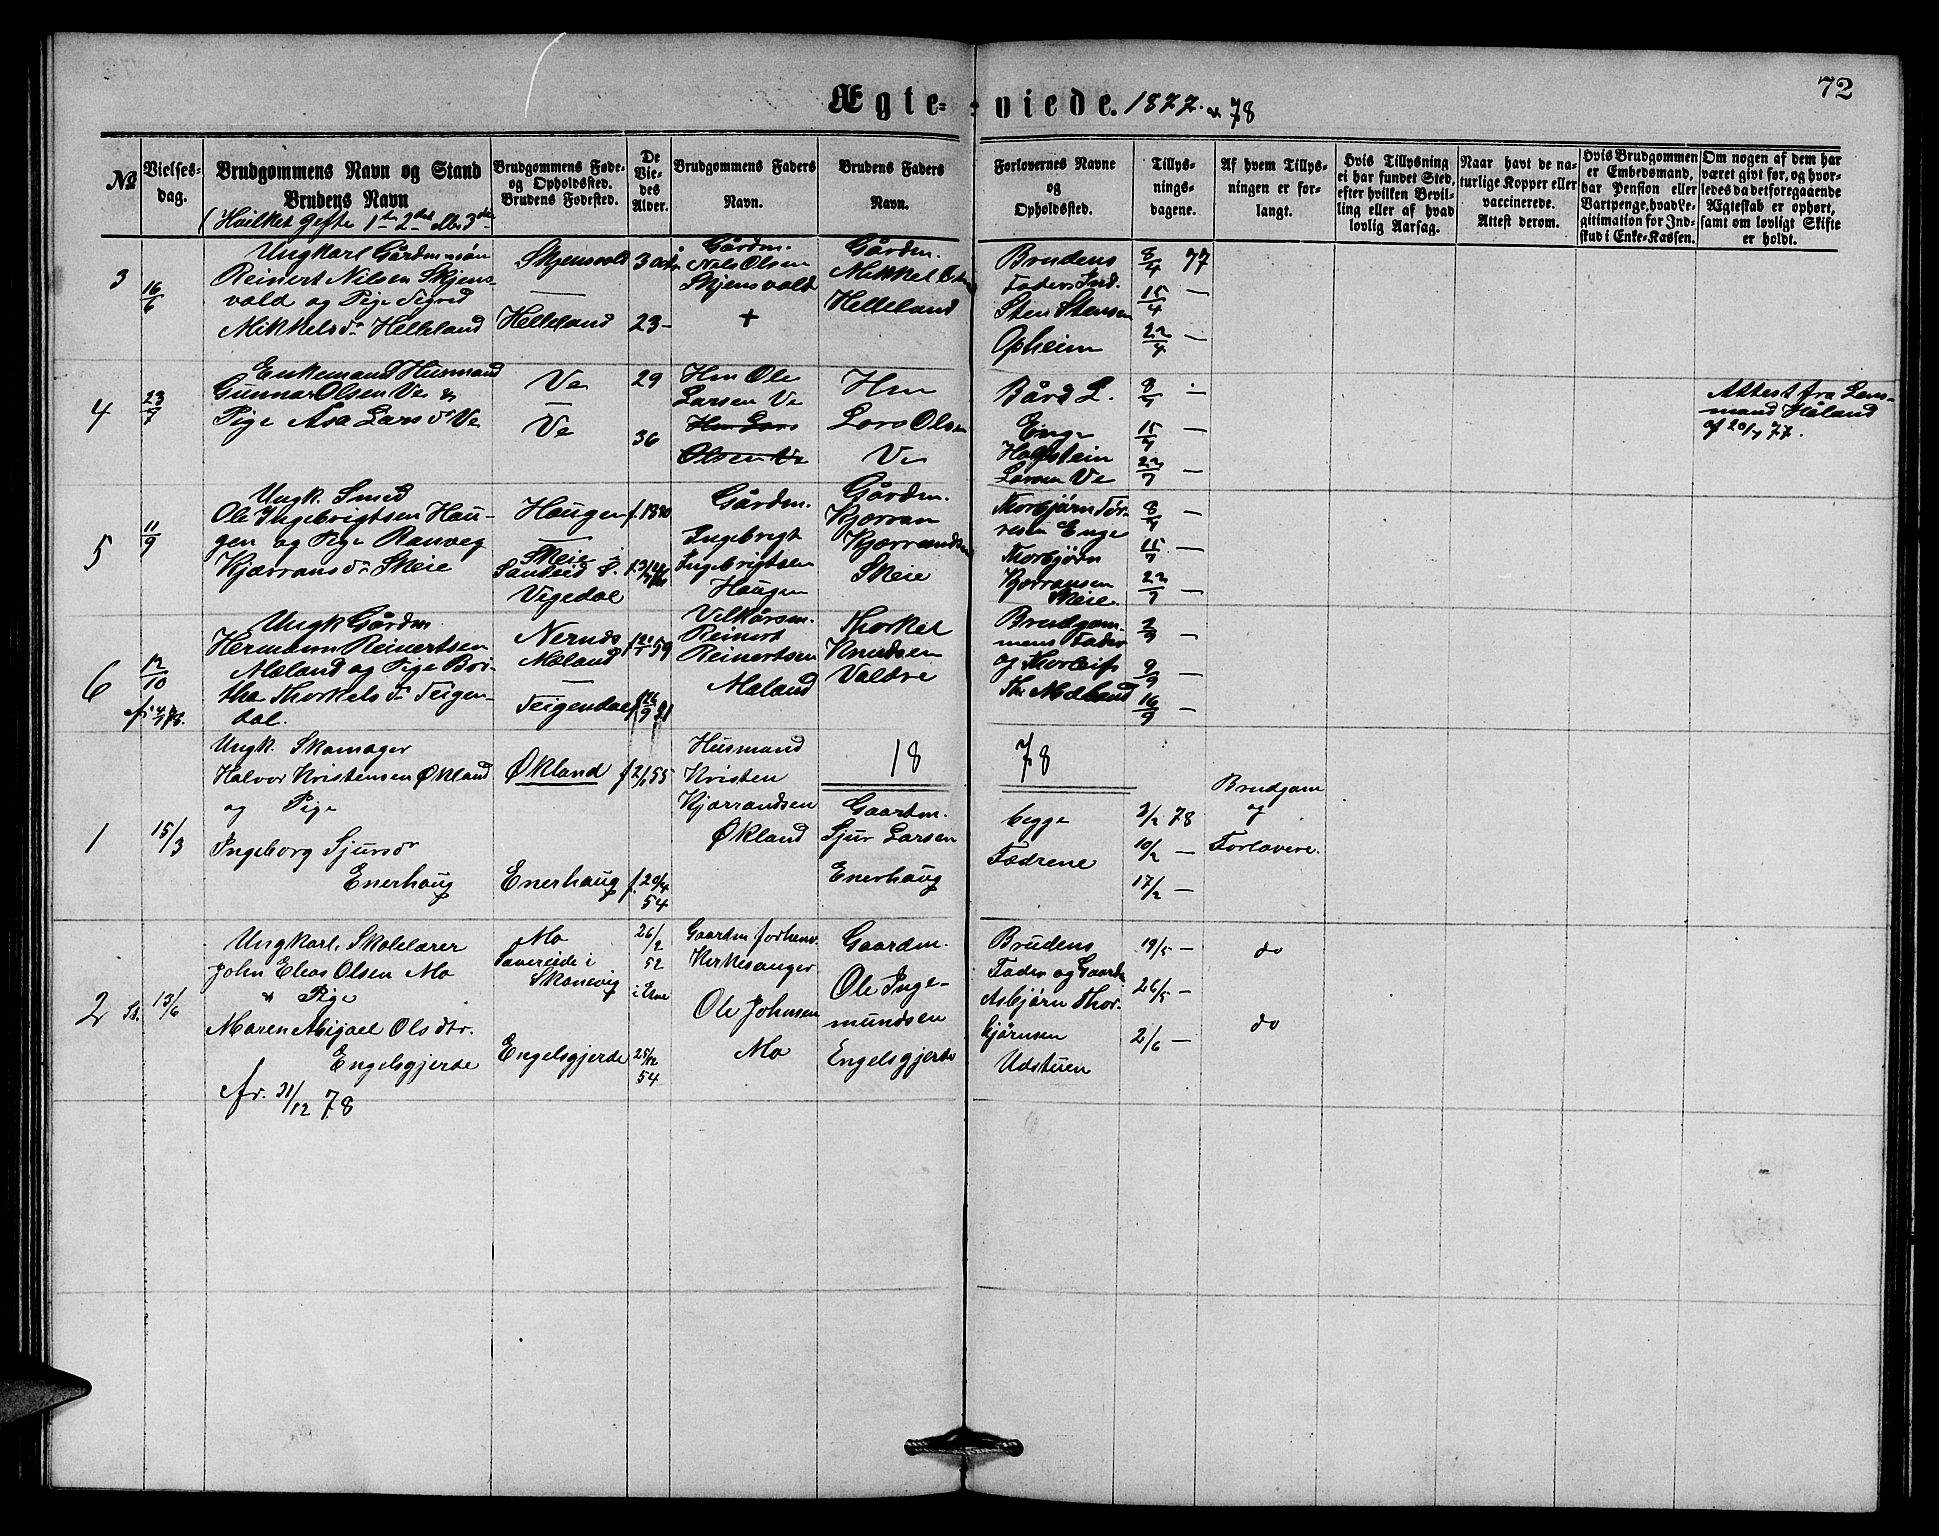 72
Ægte- viede. 1877. & 78
No
Vielses-
dag.
Brudgommens Navn og Stand
Brudens Navn
(Hvilket Gifte 1ste 2det eller 3die
Brudgommens Føde-
og Opholdssted.
Brudens Fødested.
De
Vie-
des
Alder.
Brudgommens Faders
Navn.
Brudens Faders
Navn.
Forlovernes Navne
og
Opholdssted.
Tillys-
nings-
dagene.
Af hvem Tillys-
ningen er for-
langt.
Hvis Tillysning
ei har fundet Sted,
efter hvilken Bevil-
ling eller af hvad
lovlig Aarsag.
Naar havt de na-
turlige Kopper eller
vaccinerede.
Attest derom.
Hvis Brudgommen
er Embedsmand,
har Pension eller
Vartpenge, hvad Le-
gitimation for Ind-
skud i Enke-Kassen.
Om nogen af dem har
været givt før, og hvor-
ledes da det foregaaende
Ægteskab er ophørt,
samt om lovligt Skifte
er holdt.
3
16/6
Ungkarl Gårdmnsön
Reinert Nilsen Skjens-
vold og Pige Sigred
Mikkelsdr Helleland
Skjensvold
—
Helleland
23 -
Gårdm.
Nels Olsen
Skjensvold
+
Gårdm.
Mikkel
Helleland
Brudens
Fader, Ind.
Sten Stensen
Opheim
8/4 77
15/4 —
22/4 —
4
23/7
Enkemand Husmand
Gunnar Olsen Ve &
Pige Åsa Larsdr Ve
Ve
—
Ve
29
36
Hm Ole
Larsen Ve
Hm Lars
Olsen Ve
Hm
Lars Olsen
Ve
Bård L.
Enge
Halstein
Larsen Ve
8/7 -
15/7 —
22/7 —
Attest fra Lens-
mand Håland
af 20/7 77.
5
11/9
Ungk. Smed
Ole Ingebrigtsen Hau-
gen og Pige Ranveg
Kjærransdr Skeie
Haugen
—
Skeie i
Sandeid P.
Vigedal
f. 1840
Gårdm.
Ingebrigt
Ingebrigtsen
Haugen
Gårdm.
Kjærran
Kjærrandsen
Skeie
Thorbjörn Tor-
resen Enge
Thorbjörn
Kjærransen
Skeie
8/7 —
15/7 —
22/7 —
6
12/10
Ungk Gårdm.
Hermann Reinertsen
Mæland og Pige Bri-
tha Thorkelsdr Teigen-
dal.
Nernds
Mæland
—
Teigendal
Velkårsm.
Reinert
Reinertsen
Mæland
Thorkel
Knudsen
Valdre
Brudgom-
mens Fader
og Thorleif
Mæland
2/9 —
9/9 —
16/9 —
18 78
1
15/3
Ungk. Skomager
Halvor Kristensen Økland
og Pige
Ingeborg Sjursdr
Enerhaug
Økland
Enerhaug
f 2/1 55
f. 20/4
54
Husmand
Kristen
Kjærrandsen
Økland
Gaardm.
Sjur Larsen
Enerhaug
begge
Fædrene
3/2 78
10/2 —
17/2 —
Brudgom
og
Forlovere.
2
13/6
Ungkarl, Skolelærer
John Elias Olsen Mo
& Pige
Maren Abigael Olsdtr.
Engelsgjerde
fr. 31/12 78
Mo
Savereide i
Skonevig
Engelsgjerde
26/2
52
25/12
54
Gaardm forhenv.
Kirkesanger
Ole Johnsen
Mo
Gaardm.
Ole Inge-
mundsen
Engelsgjerde
Brudens
Fader og Gaardm
Asbjørn Thor-
bjørnsen
Udstuen
19/5 —
26/5 —
2/6 —
do
do